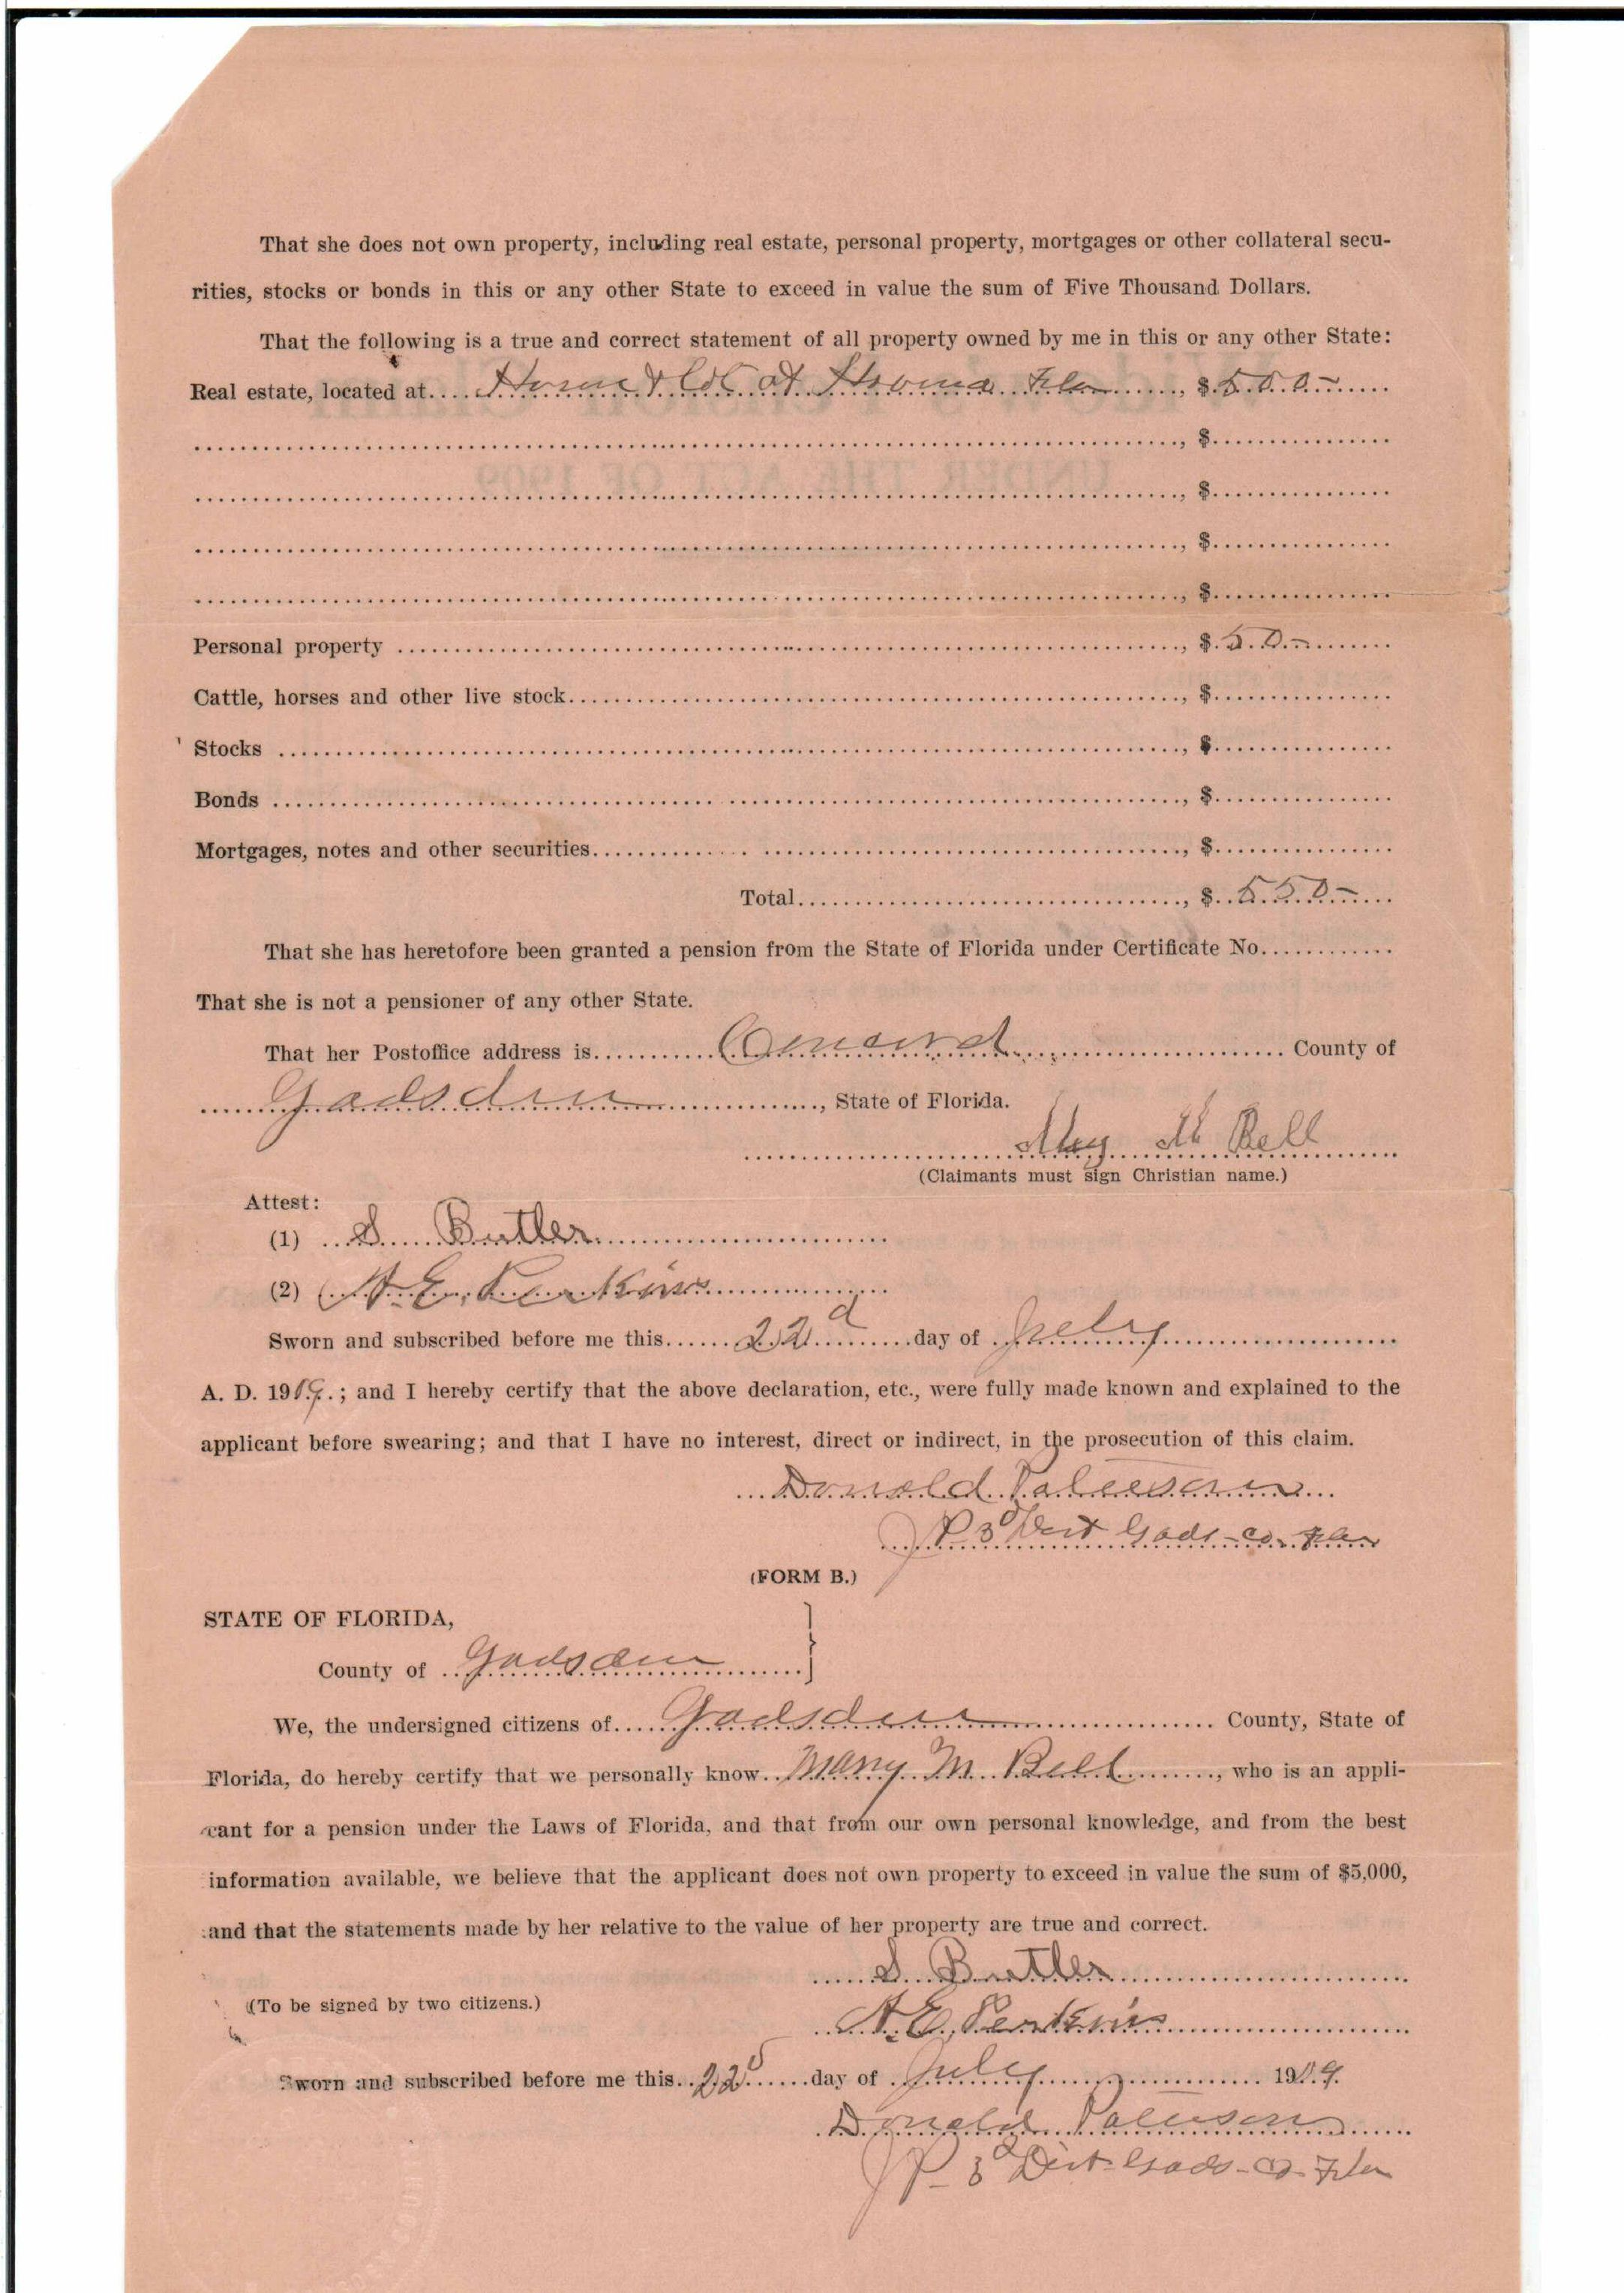 That she does not own property, including real estate, personal property, mortgages or other collateral secu-
rities, stocks or bonds in this or any other State to exceed in value the sum of Five Thousand Dollars.
That the following is a true and correct statement of all property owned by me in this or any other State:
Real estate, located at.... House & lot at Havana Fla ........, $ 500-......
........, $........
........, $........
........, $........
........, $........
Personal property ........, $ 50-......
Cattle, horses and other live stock........, $........
Stocks ........, $........
Bonds ........, $........
Mortgages, notes and other securities........, $........
Total........, $ 550-....
That she has heretofore been granted a pension from the State of Florida under Certificate No............
That she is not a pensioner of any other State.
That her Postoffice address is........ Concord ........ County of
...... Gadsden ........, State of Florida.
M Bell
(Claimants must sign Christian name.)
Attest:
(1) S Butler
(2) A. E. Perkins
Sworn and subscribed before me this...... 22d ......day of July ........
A. D. 1909.; and I hereby certify that the above declaration, etc., were fully made known and explained to the
applicant before swearing; and that I have no interest, direct or indirect, in the prosecution of this claim.
Donald
JP 3d Dist Gads-co. Fla
(FORM B.)
STATE OF FLORIDA,
County of Gadsden
We, the undersigned citizens of..... Gadsden ........ County, State of
Florida, do hereby certify that we personally know.. Mary M. Bell ........, who is an appli-
cant for a pension under the Laws of Florida, and that from our own personal knowledge, and from the best
information available, we believe that the applicant does not own property to exceed in value the sum of $5,000,
and that the statements made by her relative to the value of her property are true and correct.
S Butler
(To be signed by two citizens.)
A. E. Perkins
Sworn and subscribed before me this.. 22d ......day of July ........ 1909.
Donald
JP 3d Dist Gads-co Fla